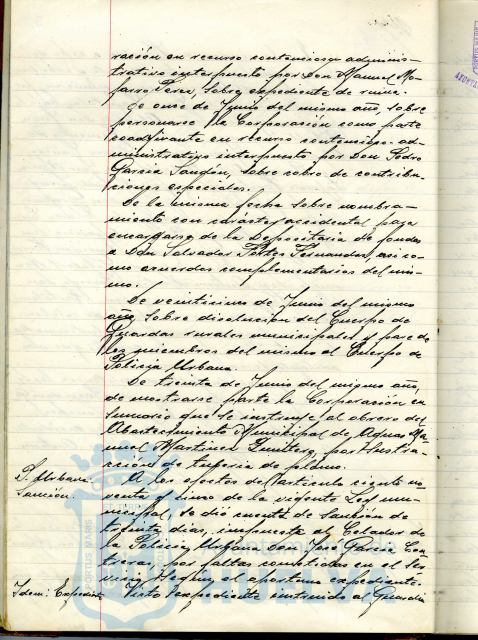 ración en recurso contencioso adminis-
trativo interpuesto por Don Manuel No-
farro Perea, sobre expediente de ruina.
De once de Junio del mismo año, sobre
personarse la Corporación como parte
coadyuvante en recurso contencioso-ad-
ministrativo interpuesto por Don Pedro
García Sandín, sobre cobro de contribu-
ciones especiales.
De la misma fecha sobre nombra-
miento con carácter accidental para
encargarse de la Depositaria de fondos
a Don Salvador Fernandez, así co-
mo acuerdos complementarios del mis-
mo.
De veinticinco de Junio del mismo
año, sobre disolución del Cuerpo de
Guardas rurales municipales y pase de
los miembros del mismo al Cuerpo de
Policía Urbana.
De treinta de Junio del mismo año,
de mostrarse parte la Corporación en
sumario que se instruye al obrero del
Abastecimiento Municipal de Aguas Ma-
nuel Martinez por sustrac-
ción de tubería de plomo.
P. Urbana. A los efectos del artículo ciento no-
Sanción. venta y cinco de la vigente Ley mu-
nicipal, se dió cuenta de sanción de
treinta días, impuesta al Celador de
la Policía Urbana Don José García Con-
treras, por faltas cometidas en el ser-
vicio, según el oportuno expediente.
Idem: Expedien. Visto expediente instruido al Guardia
PORTUS MARIS